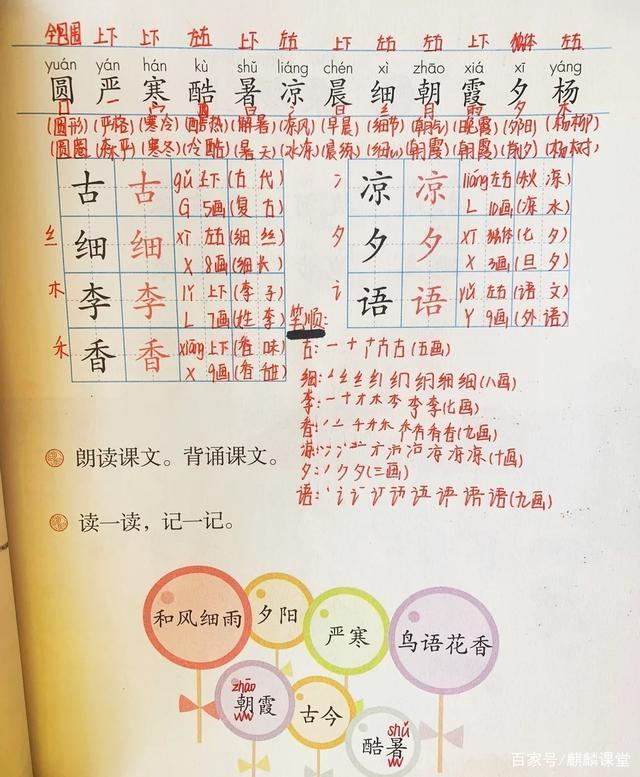 全包围 上下 上下 左右 上下 左右 上下 左右 左右 上下 独体 左右
yuán yán hán kù shǔ liáng chén xì zhāo xiá xī yáng
圆 严 寒 酷 暑 凉 晨 细 朝 霞 夕 杨
口 一 宀 酉 日 冫 日 纟 月 雨 夕 木
(圆形) (严格) (寒冷) (酷热) (解暑) (凉风) (早晨) (细节) (朝气) (晚霞) (夕阳) (杨柳)
(圆圈) (森严) (寒冬) (冷酷) (暑天) (冰凉) (晨练) (细心) (朝霞) (朝霞) (前夕) (杨树)
古 古 gǔ 上下 (古代) 冫 凉 凉 liáng 左右 (秋凉)
G 5画 (复古) L 10画 (凉水)
纟 细 细 xì 左右 (细丝) 夕 夕 夕 xī 独体 (七夕)
X 8画 (细长) X 3画 (旦夕)
木 李 李 lǐ 上下 (李子) 讠 语 语 yǔ 左右 (语文)
L 7画 (姓李) Y 9画 (外语)
笔顺:
禾 香 香 xiāng 上下 (香味)
X 9画
古: 一 十 古 古 (五画)
细: 纟 细 细 (八画)
李: 一 十 才 木 李 李 (七画)
香: 一 二 千 禾 禾 香 香 (九画)
凉: 丶 冫 凉 凉 (十画)
夕: 丿 ク 夕 (三画)
语: 丶 讠 语 语 语 (九画)
朗读课文。背诵课文。
读一读，记一记。
和风细雨 夕阳 严寒 鸟语花香
zhāo
朝霞 古今
shǔ
酷暑
百家号/麒麟课堂